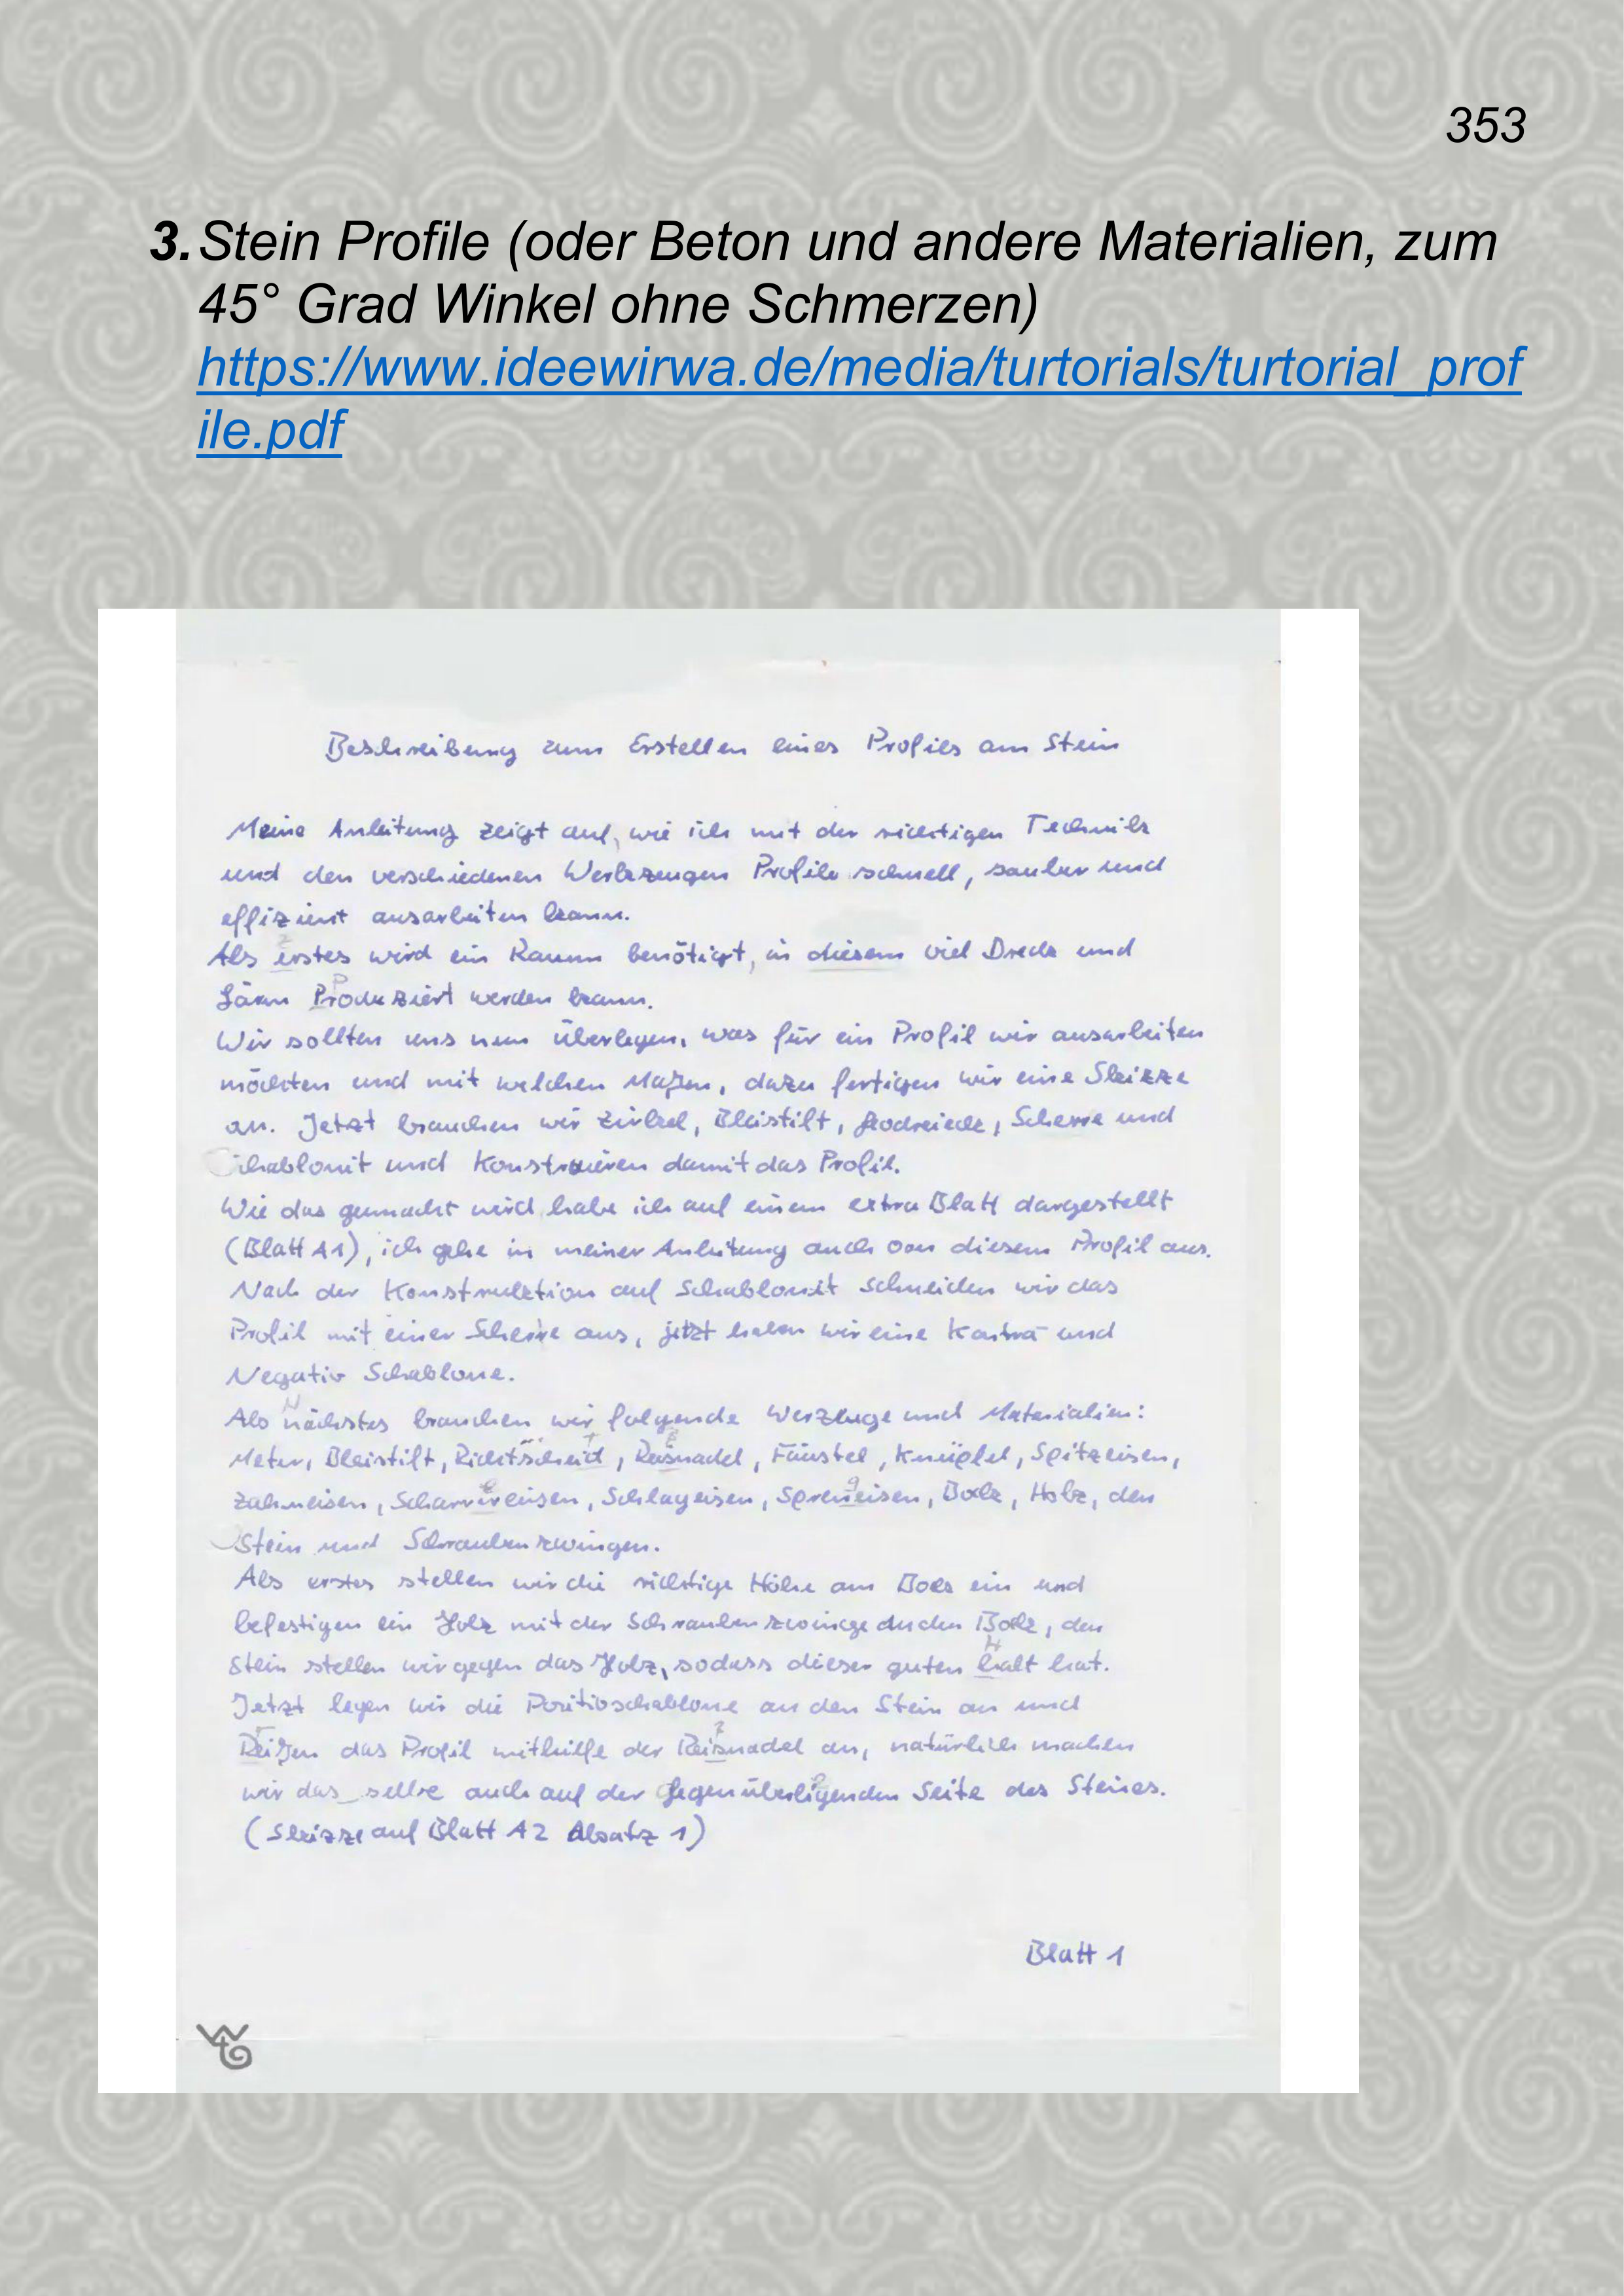 353
3. Stein Profile (oder Beton und andere Materialien, zum
45° Grad Winkel ohne Schmerzen)
https://www.ideewirwa.de/media/turtorials/turtorial_prof
ile.pdf
Beschreibung zum Erstellen eines Profies am Stein
Meine Anleitung zeigt auf, wie ich mit der richtigen Technik
und den verschiedenen Werkzeugen Profile schnell, sauber und
effizient ausarbeiten kann.
Als erstes wird ein Raum benötigt, in diesem viel Dreck und
Lärm Produziert werden kann.
Wir sollten uns nun überlegen, was für ein Profil wir ausarbeiten
möchten und mit welchen Maßen, dazu fertigen wir eine Skizze
an. Jetzt brauchen wir Zirkel, Bleistift, Geodreieck, Scherre und
Schablonit und Konstruieren damit das Profil.
Wie das gemacht wird habe ich auf einem extra Blatt dargestellt
(Blatt A1), ich gehe in meiner Anleitung auch von diesem Profil aus.
Nach der Konstruktion auf Schablonit schneiden wir das
Profil mit einer Scherre aus, jetzt haben wir eine und
Negativ Schablone.
Als nächstes brauchen wir folgende Werzeuge und Materialien:
Meter, Bleistift, Richtscheid, Reisnadel, Fäustel, Knüpfel, Spitzeisen,
Zahneisen, Scharriereisen, Schlageisen, Sprengeisen, Bock, Holz, den
Stein und Schraubenzwingen.
Als erstes stellen wir die richtige Höhe am Bock ein und
befestigen ein Holz mit der Schraubenzwinge an den Bock, den
Stein stellen wir gegen das Holz, sodass dieser guten halt hat.
Jetzt legen wir die Positivschablone an den Stein an und
Reißen das Profil mithilfe der Reisnadel an, natürlich machen
wir das selbe auch auf der Gegenüberligenden Seite des Steines.
(Skizze auf Blatt A2 Absatz 1)
Blatt 1